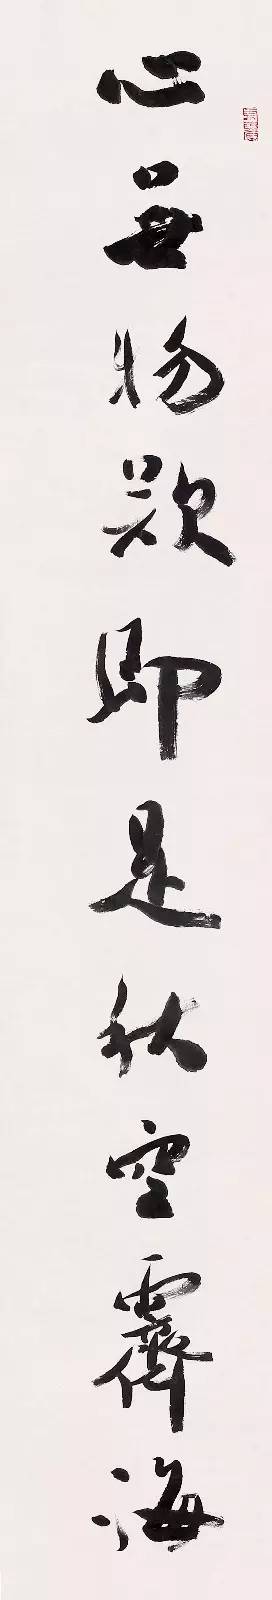 心無物欲即是秋空霽海